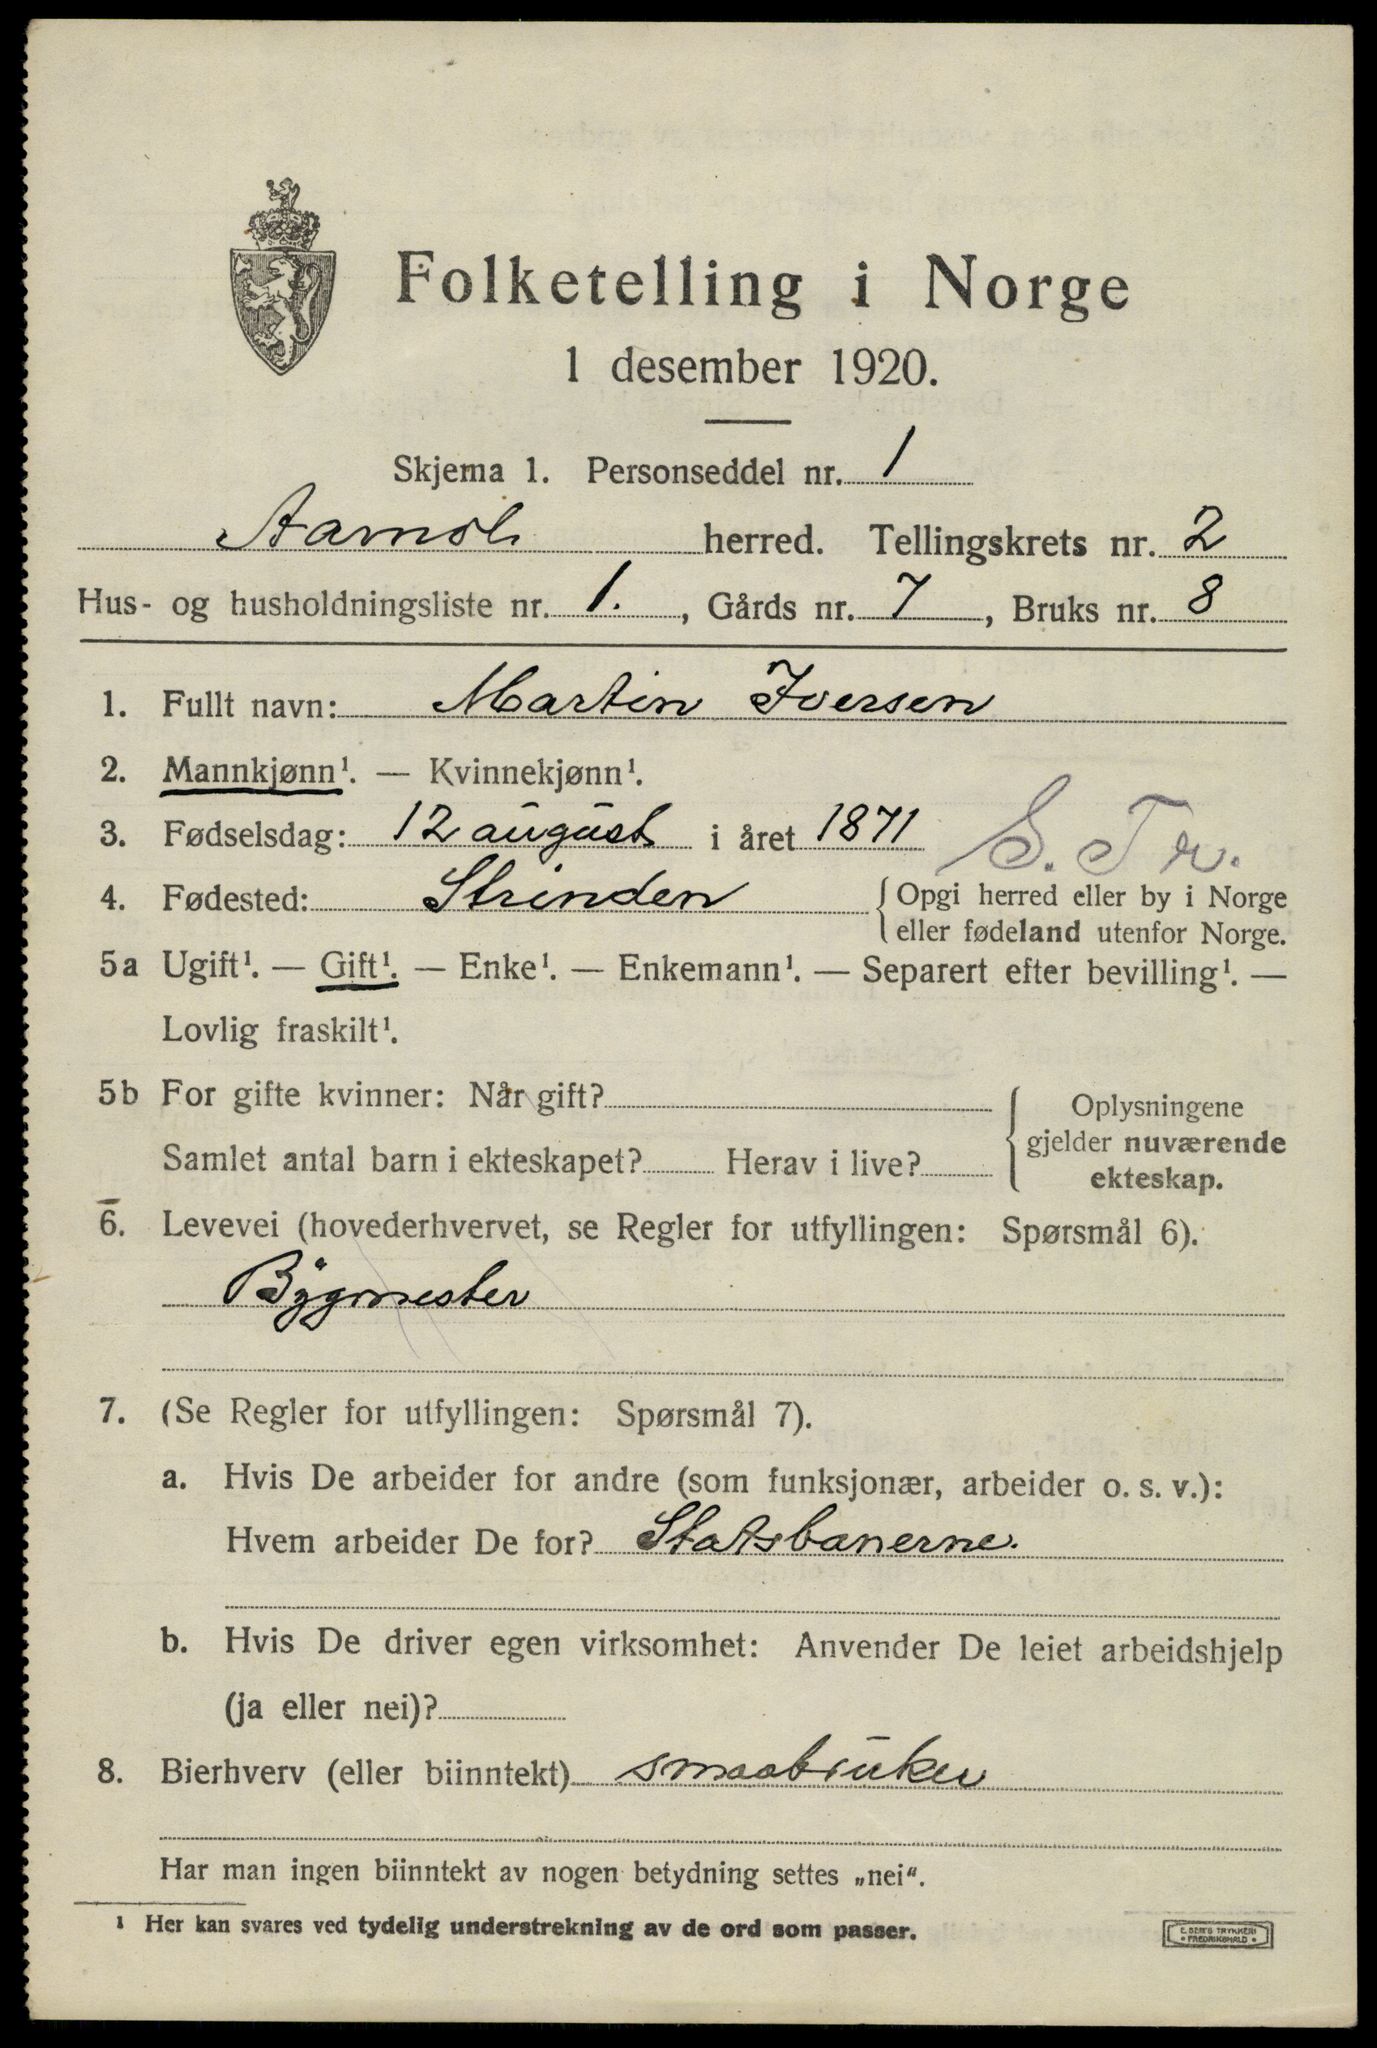 Folketelling i Norge
1 desember 1920.
Skjema 1. Personseddel nr. 1
herred. Tellingskrets nr. 2
Hus- og husholdningsliste nr. 1., Gårds nr. 7, Bruks nr. 8
1. Fullt navn: Martin Iversen
2. Mannkjønn¹. — Kvinnekjønn¹.
3. Fødselsdag: 12 august i året 1871
S. Tr.
4. Fødested: Strinden {Opgi herred eller by i Norge
eller fødeland utenfor Norge.
5a Ugift¹. — Gift¹. — Enke¹. — Enkemann¹. — Separert efter bevilling¹. —
Lovlig fraskilt¹.
5b For gifte kvinner: Når gift?
Samlet antal barn i ekteskapet? Herav i live?
{Oplysningene
gjelder nuværende
ekteskap.
6. Levevei (hovederhvervet, se Regler for utfyllingen: Spørsmål 6).
Bygmester
7. (Se Regler for utfyllingen: Spørsmål 7).
a. Hvis De arbeider for andre (som funksjonær, arbeider o. s. v.):
Hvem arbeider De for? Statsbanerne.
b. Hvis De driver egen virksomhet: Anvender De leiet arbeidshjelp
(ja eller nei)?
8. Bierhverv (eller biinntekt) smaabruker
Har man ingen biinntekt av nogen betydning settes „nei“.
¹ Her kan svares ved tydelig understrekning av de ord som passer.
E. SEM'S TRYKKERI
• FREDRIKSHALD •